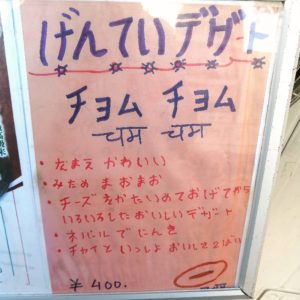 げんていデザート
チョム チョム
चम चम
・なまえ かわいい
・みため まおまお
・チーズをかためておげてから
いろいろしたおいしいデザート
・ネパールでにんき
・チャイといっしょ おいしさ2ばい
￥400.